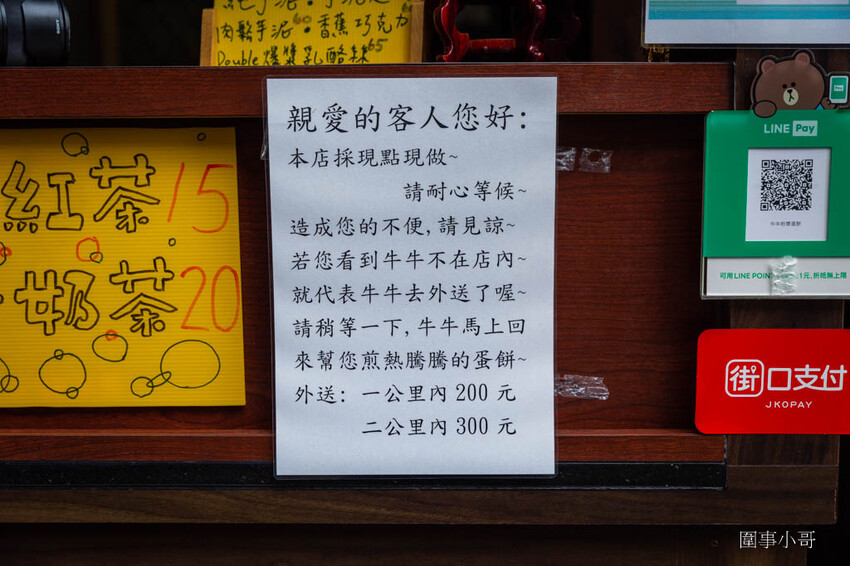 肉鬆芋泥60 香蕉巧克力
Double爆漿乳酪絲65
親愛的客人您好:
本店採現點現做~
請耐心等候~
造成您的不便,請見諒~
若您看到牛牛不在店內~
就代表牛牛去外送了喔~
請稍等一下,牛牛馬上回
來幫您煎熱騰騰的蛋餅~
外送: 一公里內 200 元
二公里內 300 元
紅茶 15
奶茶 20
LINE Pay
可用LINE POINT
1元,折抵無上限
街口支付
JKOPAY
圍事小哥